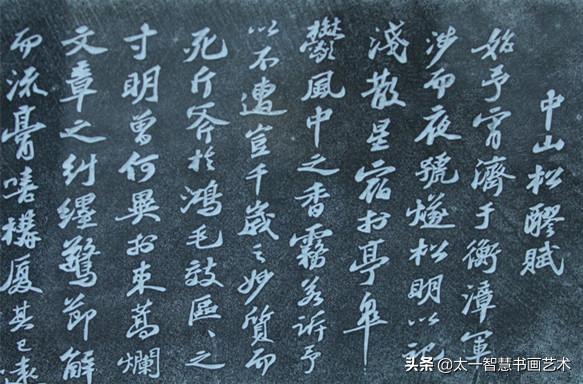 中山松醪賦
始予宵濟于衡漳軍
涉而夜號燧松明以
淺散星宿於亭皋
鬱風中之香霧若訴予
以不遭豈千歲之妙質而
死斤斧於鴻毛效區〻之
寸明曾何異於束蒿爛
文章之糾纆驚節解
而流膏嘻構廈其已遠
头条 @太一智慧书画艺术